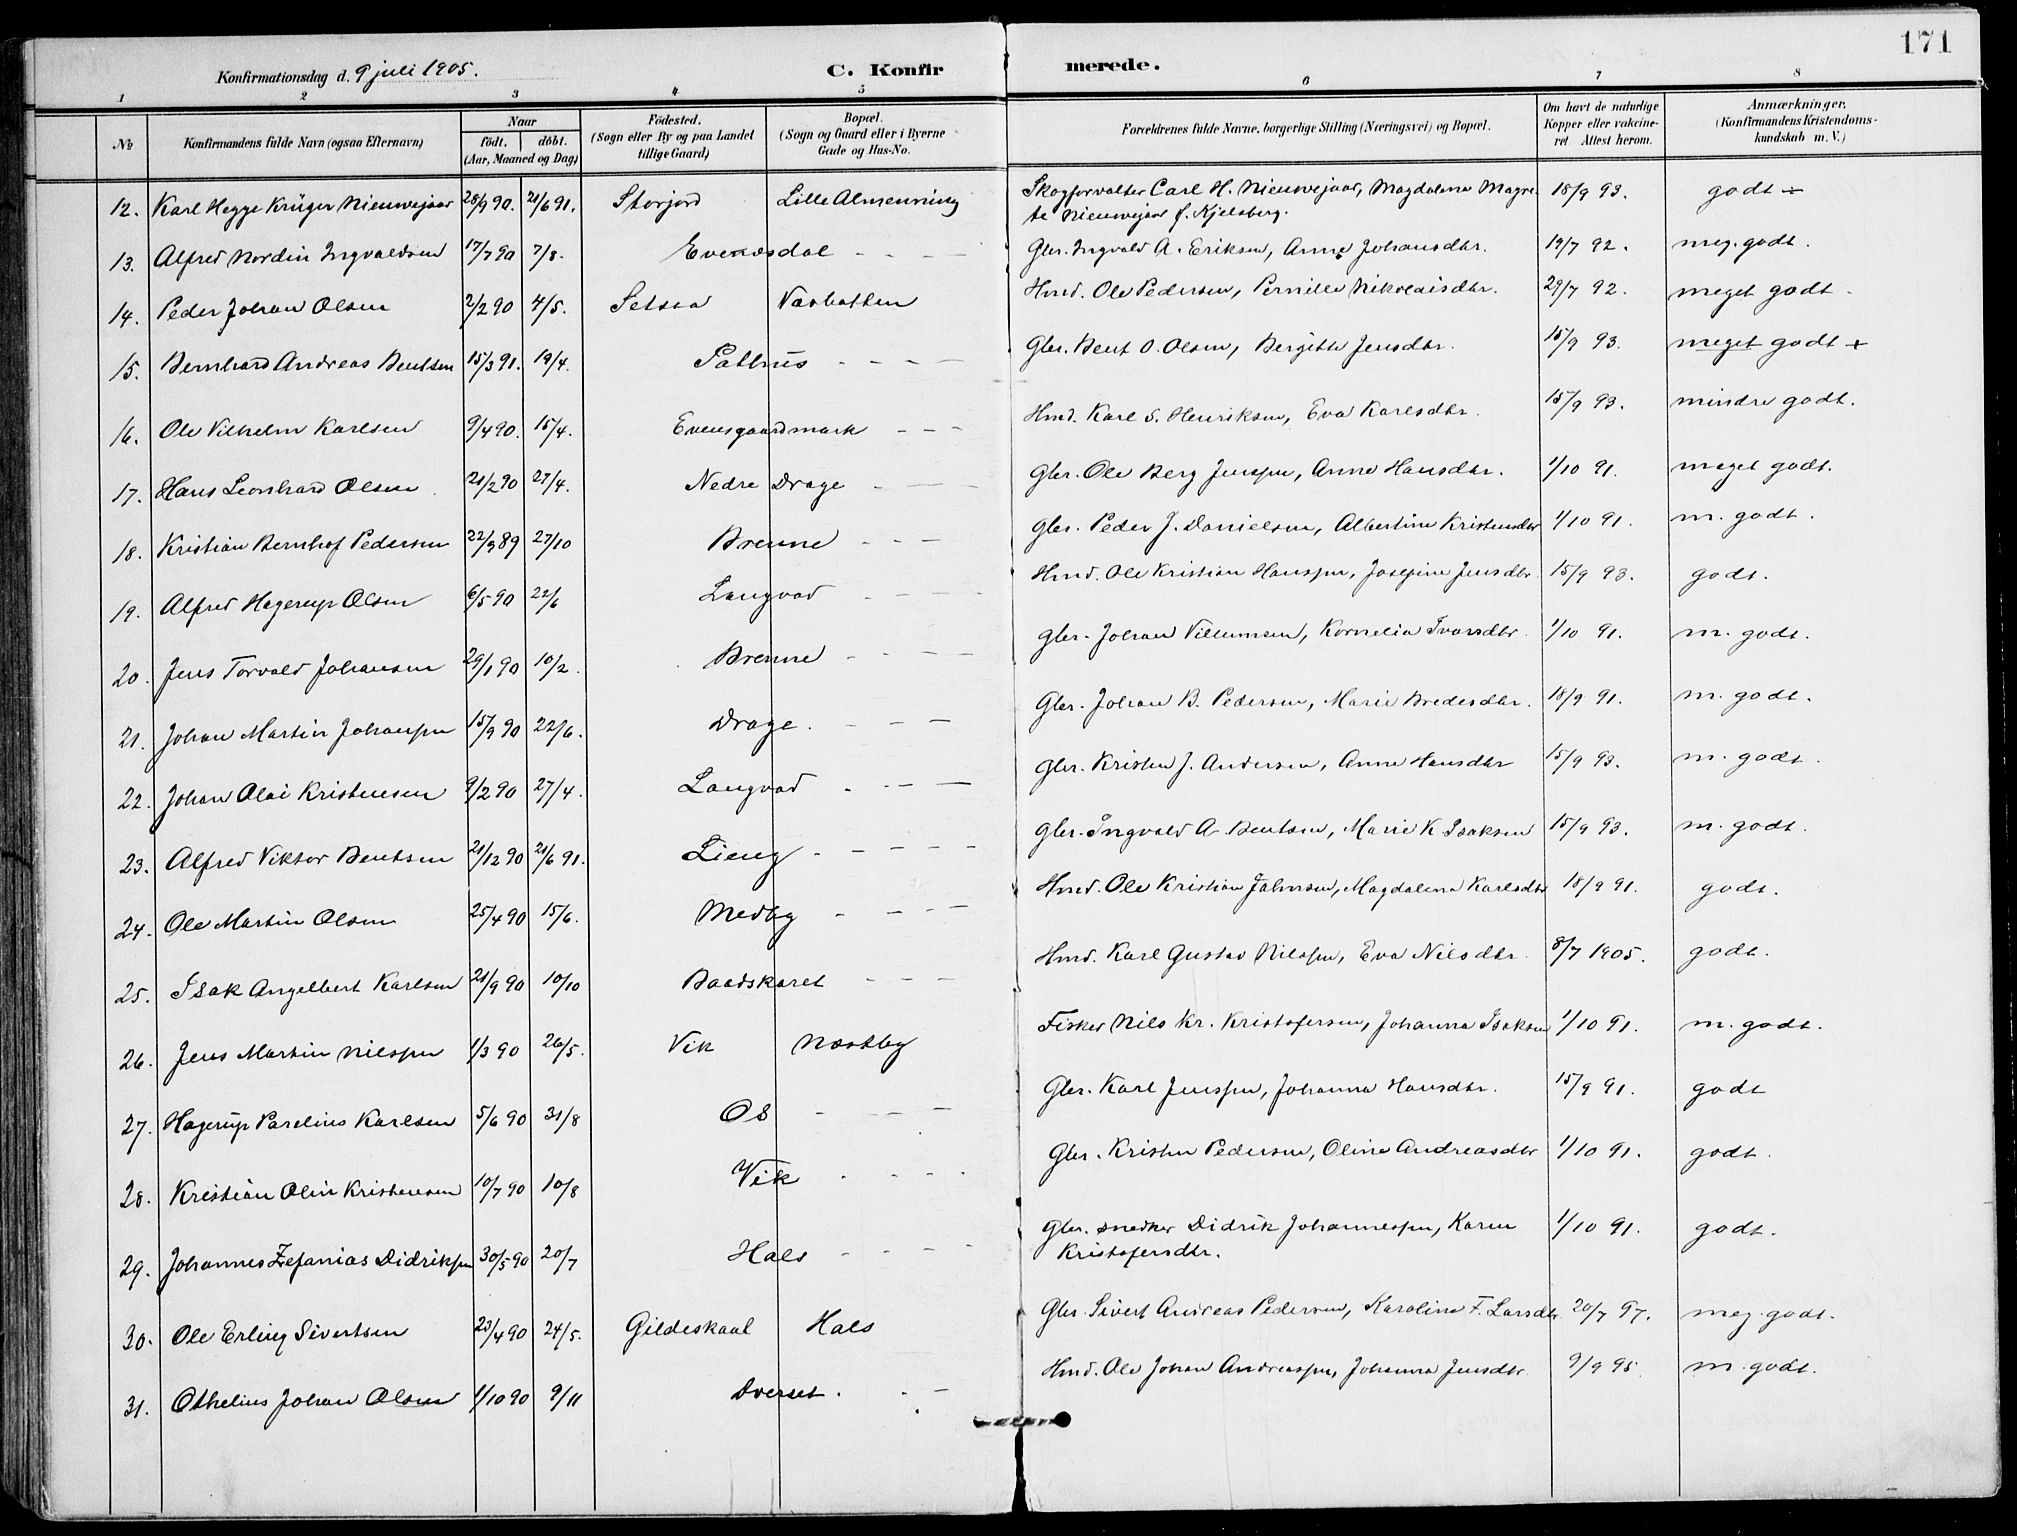 171
Konfirmationsdag d. 9 juli 1905.
C. Konfirmerede.
1 2 3 4 5 6 7 8
No
Konfirmandens fulde Navn (ogsaa Efternavn)
Naar
födt. döbt.
(Aar, Maaned og Dag)
Födested.
(Sogn eller By og paa Landet
tillige Gaard)
Bopæl.
(Sogn og Gaard eller i Byerne
Gade og Hus-No.
Forældrenes fulde Navne, borgerlige Stilling (Næringsvei) og Bopæl.
Om havt de naturlige
Kopper eller vakcine-
ret Attest herom.
Anmærkninger.
(Konfirmandens Kristendoms-
kundskab m. V.)
12. Karl Hegge Krüger Nieuwejaar 28/9 90. 21/6 91. Storjord Lille Almenning Skogforvalter Carl H. Nieuwejaar, Magdalena Magre- 18/9 93. godt
te Nieuwejaar f. Kjelsberg.
13. Alfred Nordin Ingvaldsen 17/7 90 7/8. Evenesdal - - - Gbr. Ingvald A. Eriksen, Anne Johansdtr. 19/7 92. meg. godt.
14. Peder Johan Olsen 2/2 90 4/5. Setsaa Vasbotten Hmd. Ole Pedersen, Pernille Nikolaisdtr. 29/7 92. meget godt.
15. Bernhard Andreas Bentsen 15/3 91. 19/4. - - - Gbr. Bent O. Olsen, Bergitte Jensdtr. 15/9 93. meget godt +
16. Ole Vilhelm Karlsen 9/4 90. 15/4. Evensgaardmark - - - Hmd. Karl S. Henriksen, Eva Karlsdtr. 15/9 93. mindre godt.
17. Hans Leonhard Olsen 21/2 90 27/4. Nedre Drage - - - Gbr. Ole Berg Jenssen, Anne Hansdtr. 1/10 91. meget godt.
18. Kristian Bernhof Pedersen 22/9 89 27/10 Brenne - - - Gbr. Peder J. Danielsen, Albertine Kristensdtr 1/10 91. m. godt.
19. Alfred Hagerup Olsen 6/5 90 22/6 Langvad - - - Hmd. Ole Kristian Hanssen, Josefine Jensdtr. 15/9 93. godt.
20. Jens Torvald Johansen 29/1 90 10/2. Brenne - - - Gbr. Johan Villumsen, Kornelia Ivarsdtr. 1/10 91. m. godt.
21. Johan Martin Johanssen 15/9 90 22/6. Drage. - - - Gbr. Johan B. Pedersen, Marie Bredesdtr. 18/9 91. m. godt.
22. Johan Olai Kristensen 9/2 90 27/4. Langvad - - - Gbr. Kristen J. Andersen, Anne Hansdtr 15/9 93. m. godt.
23. Alfred Viktor Bentsen 21/12 90 21/6 91. Lieng - - - - Gbr. Ingvald A. Bentsen, Marie K Isaksen 15/9 93. m. godt.
24. Ole Martin Olsen 25/4 90 15/6. Medby - - - Hmd. Ole Kristian Jahnsen, Magdalena Karlsdtr 18/9 91. godt.
25. Isak Angelbert Karlsen 21/9 90 10/10 Baadskaret - - - Hmd. Karl Gustav Nilssen, Eva Nilsdtr. 8/7 1905. godt.
26. Jens Martin Nilssen 1/3 90 26/5. Vik Næstby Fisker Nils Kr. Kristofersen, Johanna Isaksen 1/10 91. m. godt.
27. Hagerup Parelius Karlsen 5/6 90 31/8 Os - - - Gbr. Karl Jenssen, Johanna Hansdtr. 15/9 91. godt
28. Kristian Olin Kristensen 10/7 90 10/8 Vik - - - Gbr. Kristen Pedersen, Oline Andreasdtr 1/10 91. godt.
29. Johannes Zefanias Didriksen 30/5 90 20/7 Hals - - - Gbr. snedker Didrik Johannessen, Karen 1/10 91. godt.
Kristofersdtr.
30. Ole Erling Sivertsen 23/4 90 24/5. Gildeskaal Hals Gbr. Sivert Andreas Pedersen, Karoline F. Larsdtr 20/7 97. meg. godt.
31. Othelius Johan Olsen 1/10 90 9/11 Dverset. - - Hmd. Ole Johan Andreassen, Johanna Jensdtr. 9/9 95. m. godt.